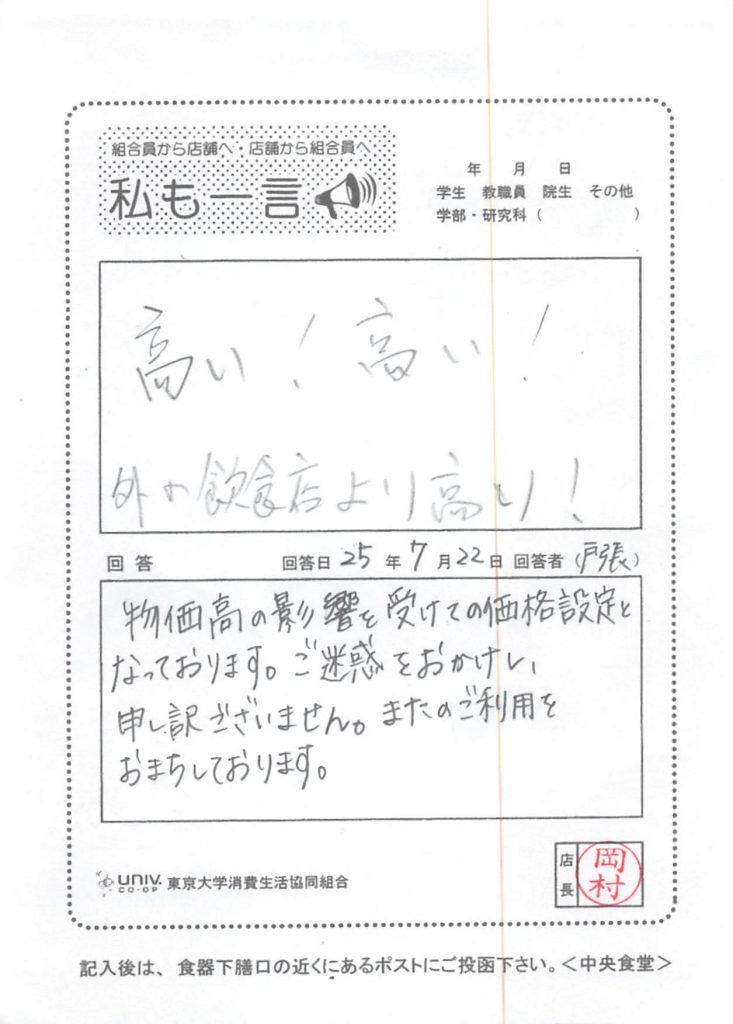 組合員から店舗へ・店舗から組合員へ
私も一言
年 月 日
学生 教職員 院生 その他
学部・研究科( )
高い!高い!
外の飲食店より高い!
回答 回答日 25 年 7 月 22 日 回答者(戸張)
物価高の影響を受けての価格設定と
なっております。ご迷惑をおかけし、
申し訳ございません。またのご利用を
おまちしております。
UNIV. CO-OP 東京大学消費生活協同組合
店長 岡村
記入後は、食器下膳口の近くにあるポストにご投函下さい。<中央食堂>